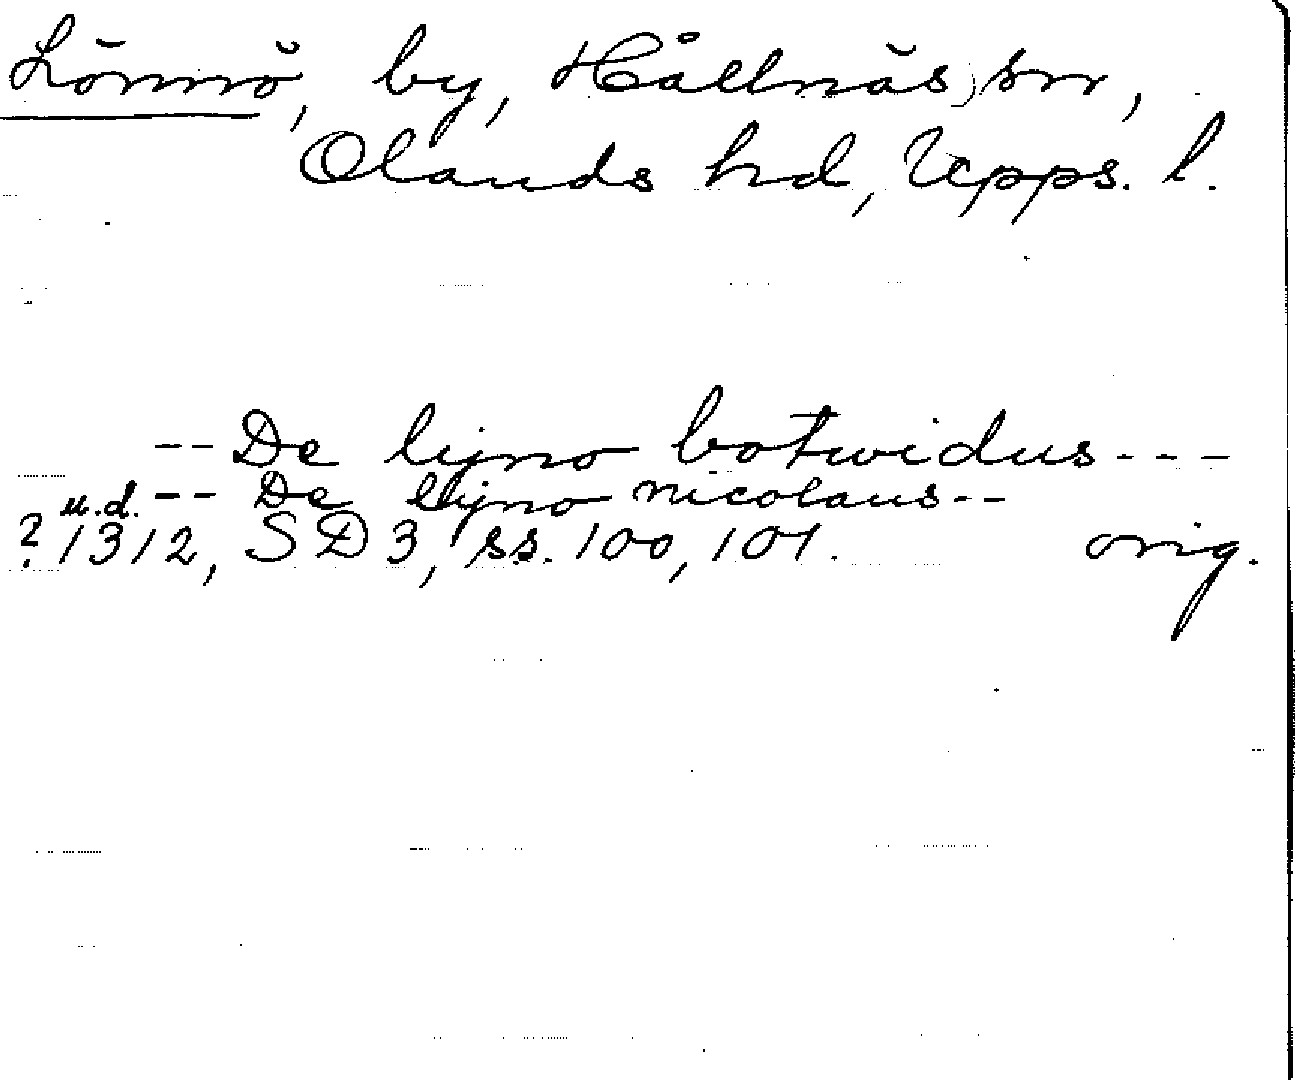 Lönnö, by, Hållnäs sn,
Olands hd, Upps. l.
-- De lyno botwidus ---
u.d. -- De lyno nicolaus --
? 1312, SD 3, ss. 100, 101. orig.